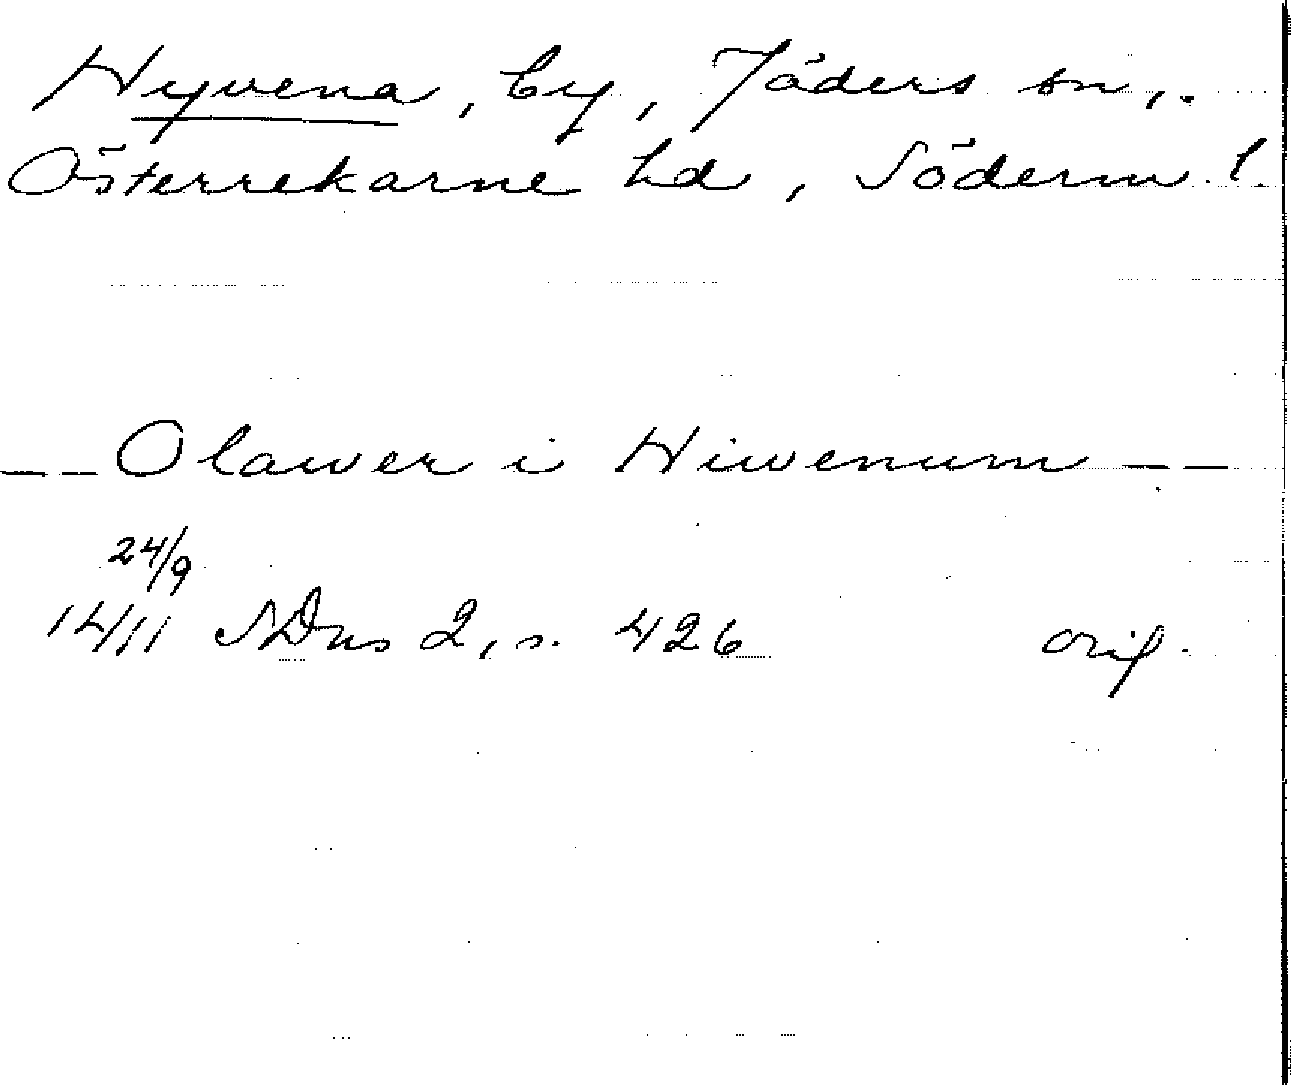 Hyvena, by, Jäders sn,.
Österrekarne hd, Söderm l.
-- Olawer i Hiwenum --
24/9
1411 SDns 2, s. 426 orig.